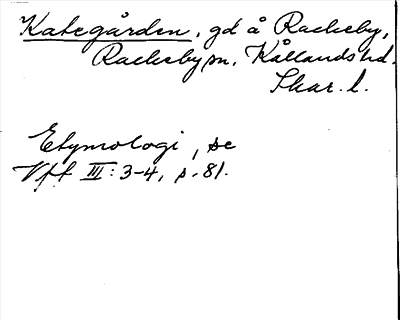 Kategården, gd å Rackeby,
Rackeby sn, Kållands hd.
Skar. l.
Etymologi, se
Vff III: 3-4, s. 81.